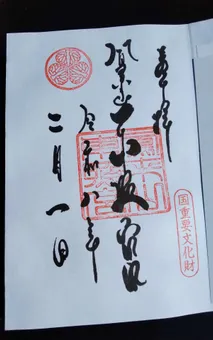 奉拝
鳳来山東照宮
令和八年
二月一日
国重要文化財